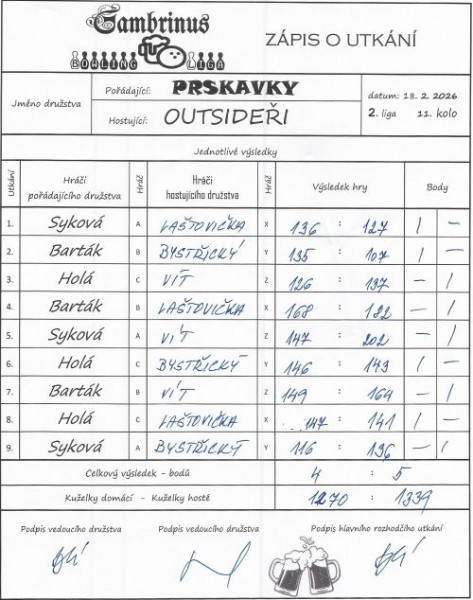 Gambrinus
BOWLING LIGA
ZÁPIS O UTKÁNÍ
Jméno družstva
Pořádající: PRSKAVKY
Hostující: OUTSIDEŘI
datum: 13. 2. 2026
2. liga 11. kolo
Jednotlivé výsledky
Utkání Hráči pořádajícího družstva Hráč Hráči hostujícího družstva Hráč Výsledek hry Body
1. Syková A LAŠTOVIČKA X 136 : 127 | —
2. Barták B BYSTŘICKÝ Y 135 : 107 | —
3. Holá C VÍT Z 126 : 137 — |
4. Barták B LAŠTOVIČKA X 168 : 182 — |
5. Syková A VÍT Z 147 : 202 — |
6. Holá C BYSTŘICKÝ Y 146 : 143 | —
7. Barták B VÍT Z 149 : 164 — |
8. Holá C LAŠTOVIČKA X 147 : 141 | —
9. Syková A BYSTŘICKÝ Y 116 : 136 — |
Celkový výsledek - bodů 4 : 5
Kuželky domácí - Kuželky hosté 1270 : 1339
Podpis vedoucího družstva Podpis vedoucího družstva Podpis hlavního rozhodčího utkání